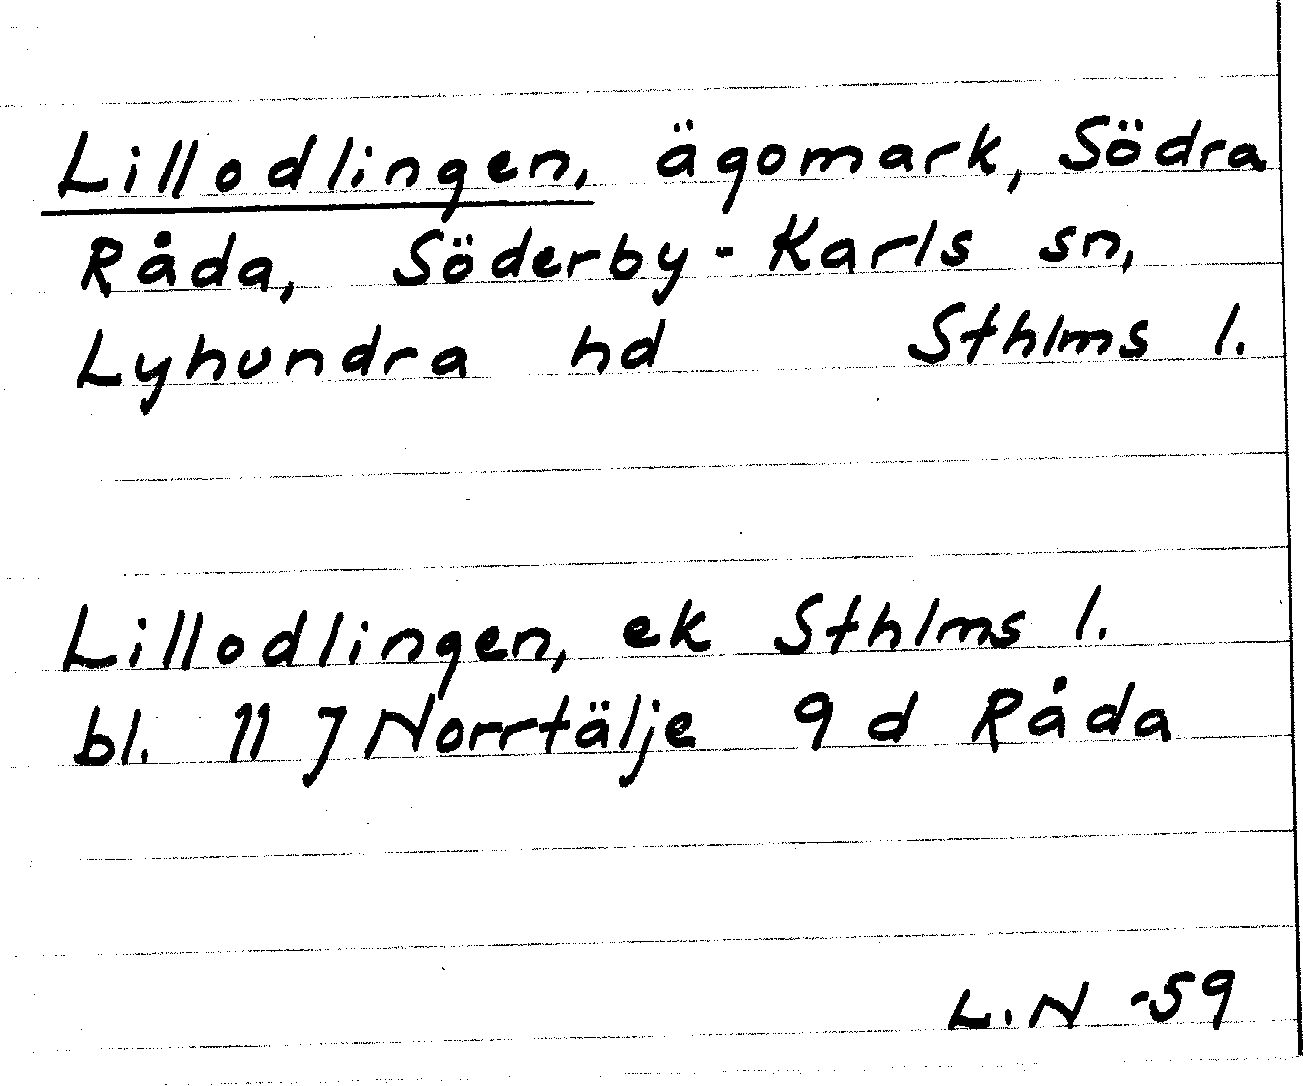 Lillodlingen, ägomark, Södra
Råda, Söderby-Karls sn,
Lyhundra hd Sthlms l.
Lillodlingen, ek Sthlms l.
bl. 11 J Norrtälje 9 d Råda
L.N -59